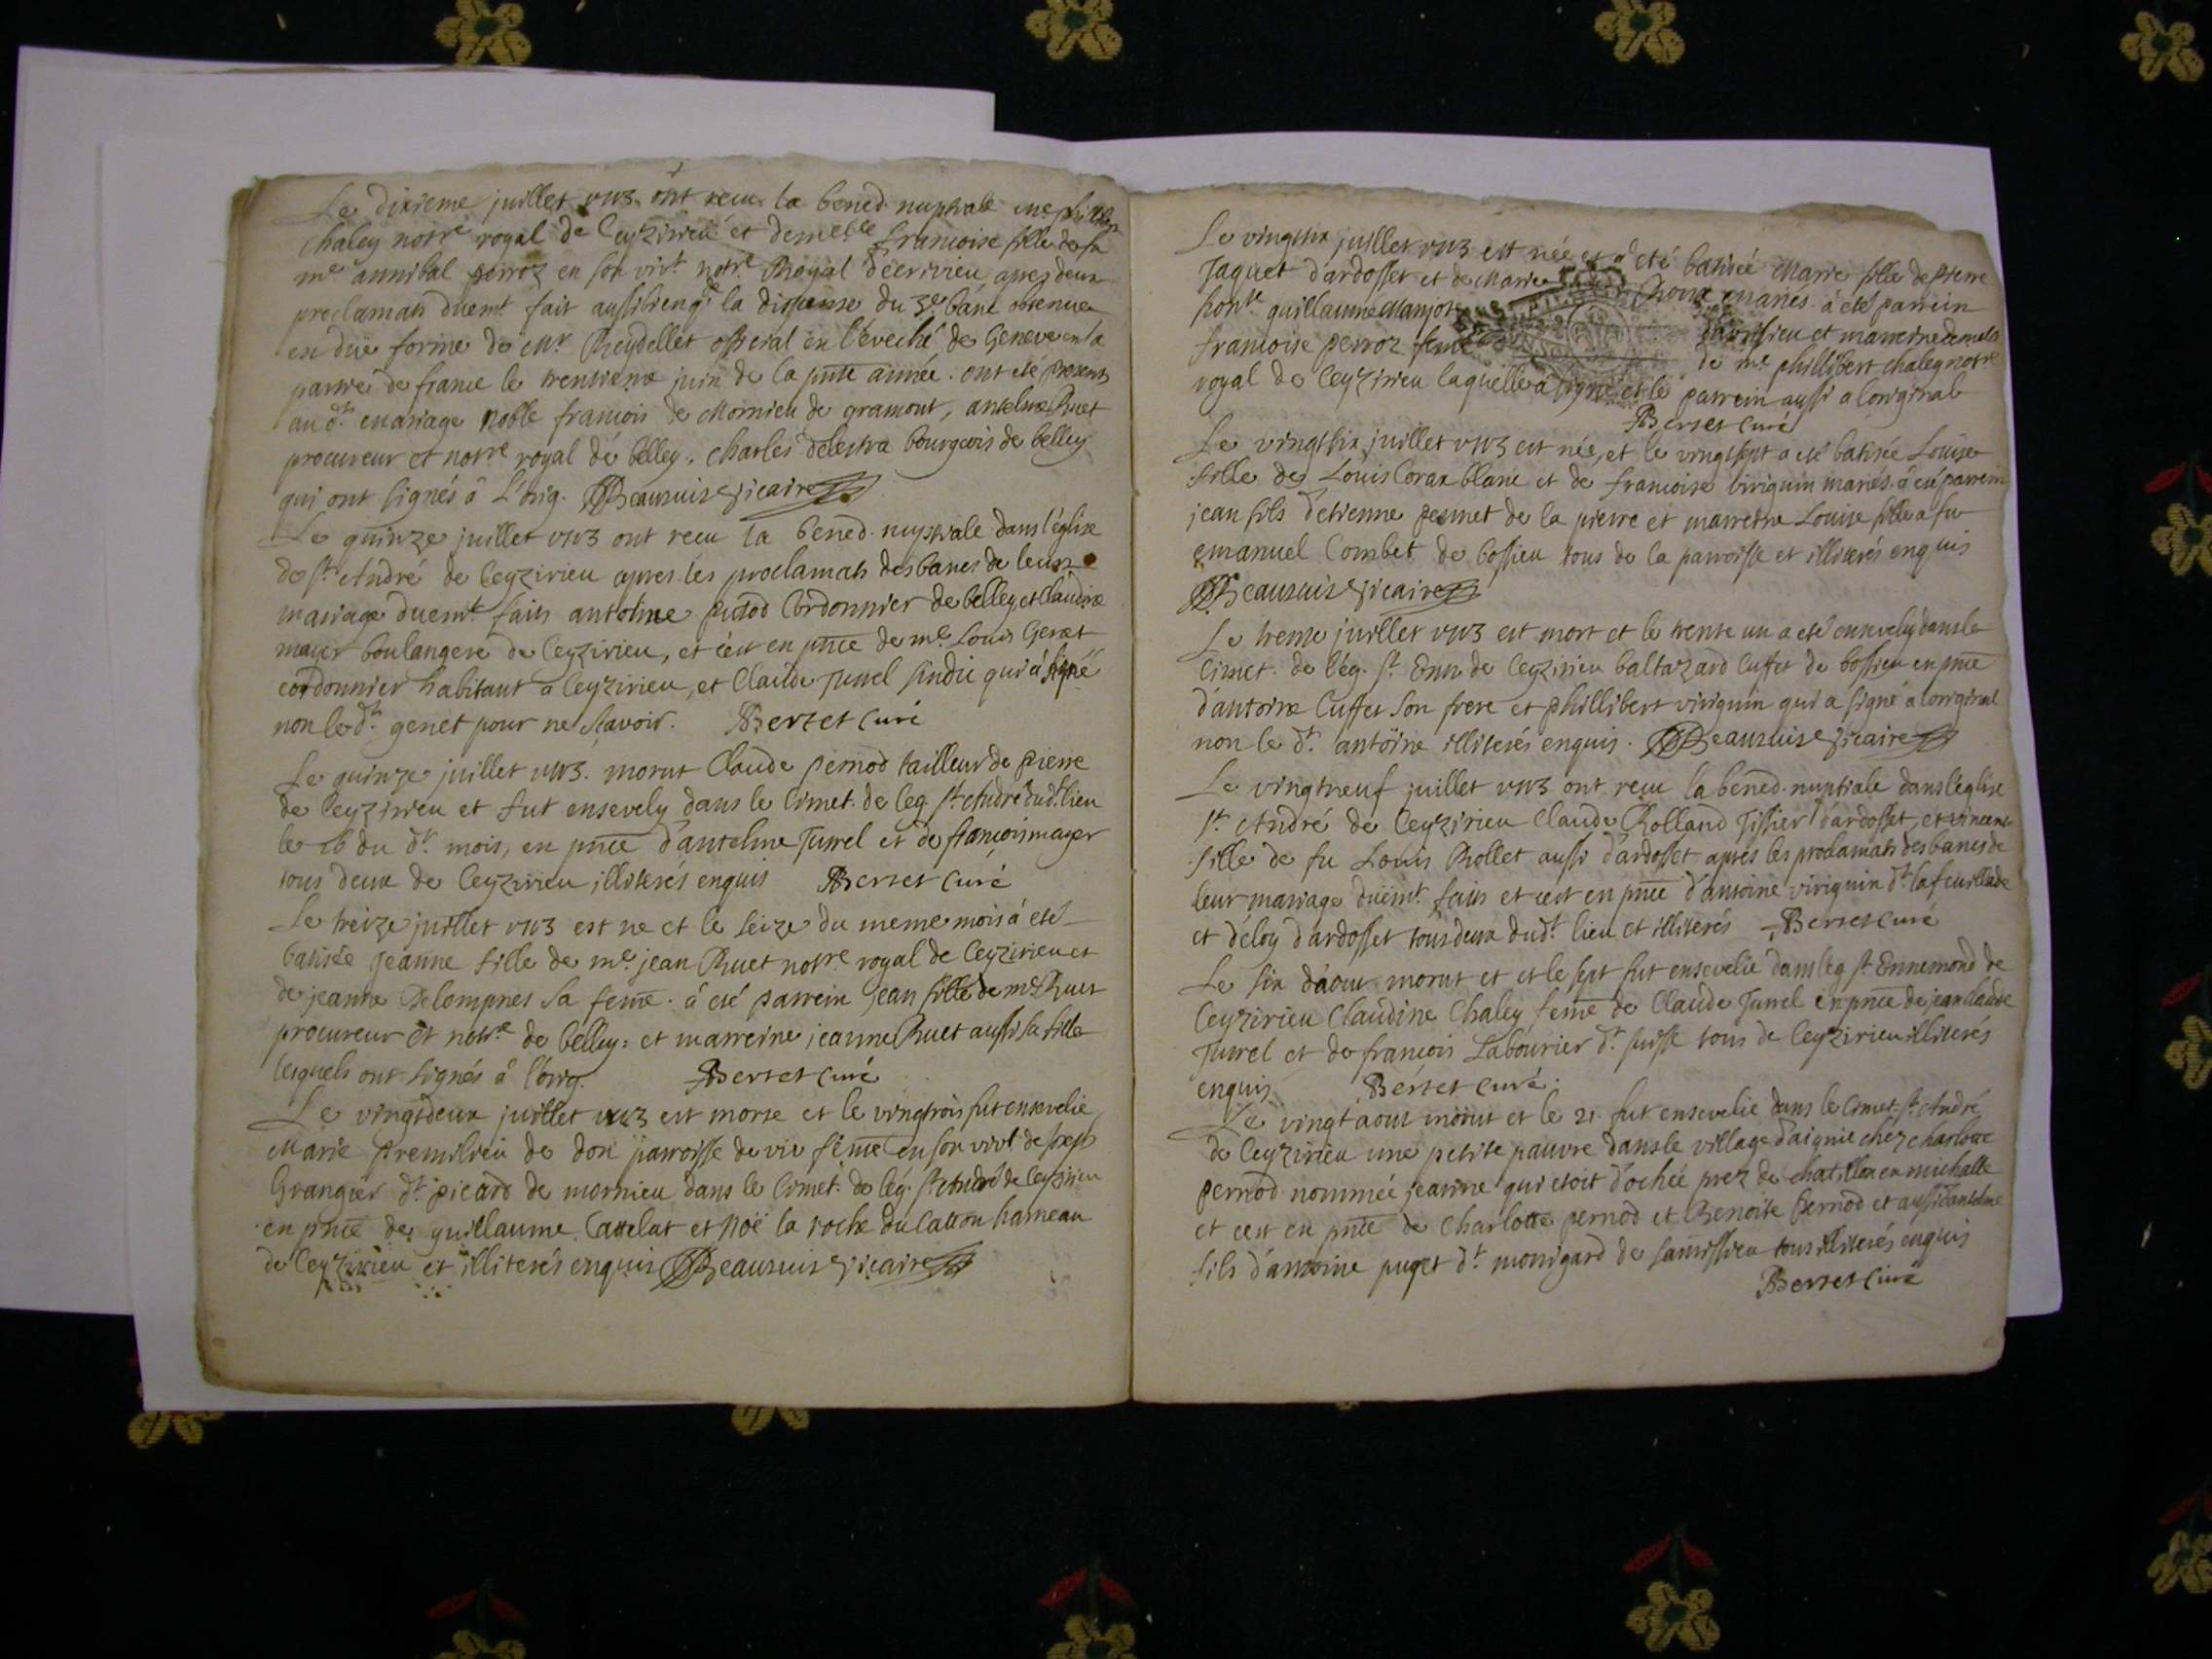 Le dixieme juillet 1713 ont recu la bened. nuptiale me phillibert
Chaley notre royal de Ceyzirieu et demelle francoise fille de fu
me annibal perroz en son vivt. notre. Royal décrivieu apres deux
proclamats duemt fait aussi bien que la dispense du 3e. banc obtenue
en düe forme de Mr Reydellet official en l'éveché de Geneve en la
partie de france le trentieme juin de la pnte année. ont eté presents
au dt. mariage Noble francois de Mornieu de gramont, antelme Ruet
procureur et notre royal de belley, Charles delestra bourgeois de belley
qui ont signés à l'orig. Beausuis vicaire
Le quinze juillet 1713 ont recu la bened. nuptiale dans l'église
de st. André de Ceyzirieu apres les proclamats des bancs de leur
mariage duemt. faits antoine putod Cordonnier de belley et Claudine
mayer boulangere de Ceyzirieu, et c'est en pnce de me. Louis Genet
cordonnier habitant a Ceyzirieu, et Claude Jurrel sindic qui à signé
non le dt. genet pour ne scavoir. Bertet Curé
Le quinze juillet 1713. morut Claude pernod tailleur de pierre
de Ceyzirieu et fut ensevely dans le Cimet. de leg. st. André dudt. lieu
le 16 du dt. mois, en pnce d'antelme Jurrel et de francois mayer
tous deux de Ceyzirieu illiterés enquis Bertet Curé
Le treize juillet 1713 est ne et le seize du meme mois à eté
batisée Jeanne fille de me. jean Ruet notre. royal de Ceyzirieu et
de jeanne Delompnes sa feme. à eté parrein jean fille de me Ruet
procureur et notre. de belley: et marreine jeanne Ruet aussi sa fille
lesquels ont signés à l'orig. Bertet Curé
Le vingtdeux juillet 1713 est morte et le vingtrois fut ensevelie
Marie premilieu de don parroisse de vir feme en son vivt. de joseph
Grangier dt. picard de mornieu dans le Cimet. de l'ég. st. André de Ceyzirieu
en pnce de guillaume Cattelat et Noë la roche du Catton hameau
de Ceyzirieu et illiterés enquis Beausuis vicaire
Le vingtsix juillet 1713 est née et à eté batisée Marie fille de pierre
Jaquet d'ardosset et de Marie Roux mariés. à eté parrein
honte. guillaume Marjot davissieu et marreine demelle
francoise perroz feme de me. phillibert chaley notre
royal de Ceyzirieu laquelle à signé et le parrein aussi a loriginal
Bertet Curé
Le vingtsix juillet 1713 est née, et le vingtsept a eté batisée Louise
fille de Louis Corax blanc et de francoise viriguin mariés. à eté parrein
jean fils d'etienne pennet de la pierre et marreine Louise fille à fu
emanuel Combet de bossieu tous de la parroisse et illiterés enquis
Beausuis vicaire
Le trente juillet 1713 est mort et le trente un a eté ensevely dans le
Cimet. de l'ég. st. Enn. de Ceyzirieu baltazard Cuffet de bossieu en pnce
d'antoine Cuffet son frere et phillibert viriguin qui a signé a loriginal
non le dt. antoine illiterés enquis. Beausuis vicaire
Le vingtneuf juillet 1713 ont recu la bened. nuptiale dans l'eglise
st. André de Ceyzirieu Claude Rolland Tissier d'ardosset, et vincenne
fille de fu Louis Rollet aussi d'ardosset apres les proclamats des bancs de
leur mariage duemt. faits et cest en pnce d'antoine viriguin dt. la feuillade
et d'éloy d'ardosset tous deux dudt. lieu et illiterés Bertet Curé
Le six d'aout morut et et le sept fut ensevelie dans leg. st. Ennemond de
Ceyzirieu Claudine Chaley feme de Claude Jurrel en pnce de jean claude
Jurrel et de francois Labourier dt. suisse tous de Ceyzirieu illiterés
enquis Bertet Curé.
Le vingt aout morut et le 21. fut ensevelie dans le Cimet. st. André
de Ceyzirieu une petite pauvre dans le village d'aignie chez charlotte
pernod nommée jeanne qui etoit d'ochée prez de chatillon en michalle
et cest en pnce de Charlotte pernod et Benoite pernod et aussi d'antelme
fils d'antoine puget dt. monigard de samissieu tous illiterés enquis
Bertet Curé